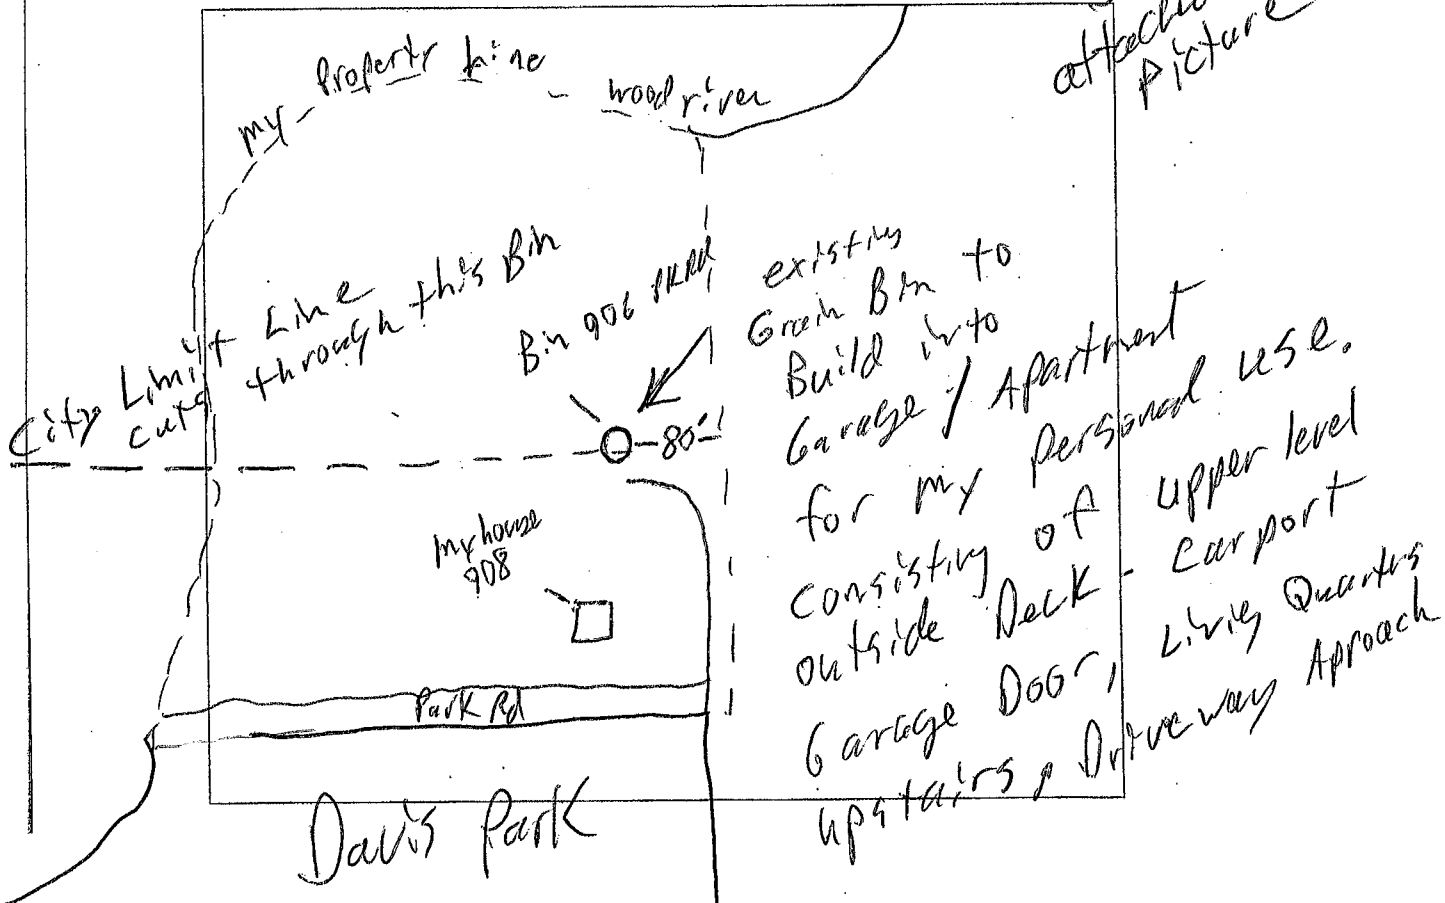 attached
Picture
my Property Line
wood river
City Limit Line
cuts through this Bin
Bin 906 PKRd
80'
existing
Grain Bin to
Build into
Garage / Apartment
for my Personal use.
Consisting of upper level
outside Deck - Carport
Garage Door, Living Quarters
upstairs, Driveway Aproach
my house
908
Park Rd
Davis Park